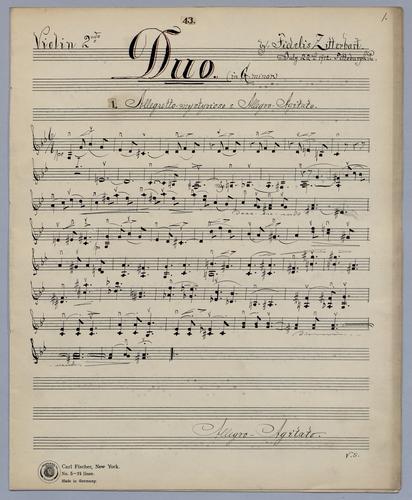 43.
1.
Violin 2nd
by Fidelis Zitterbart.
Duo.
(in G minor)
July 22nd 1912. Pittsburgh Pa.
1. Allegretto mysterioso e Allegro-Agitato.
Allegro-Agitato.
V.S.
Carl Fischer, New York.
No. 5—24 lines.
Made in Germany.